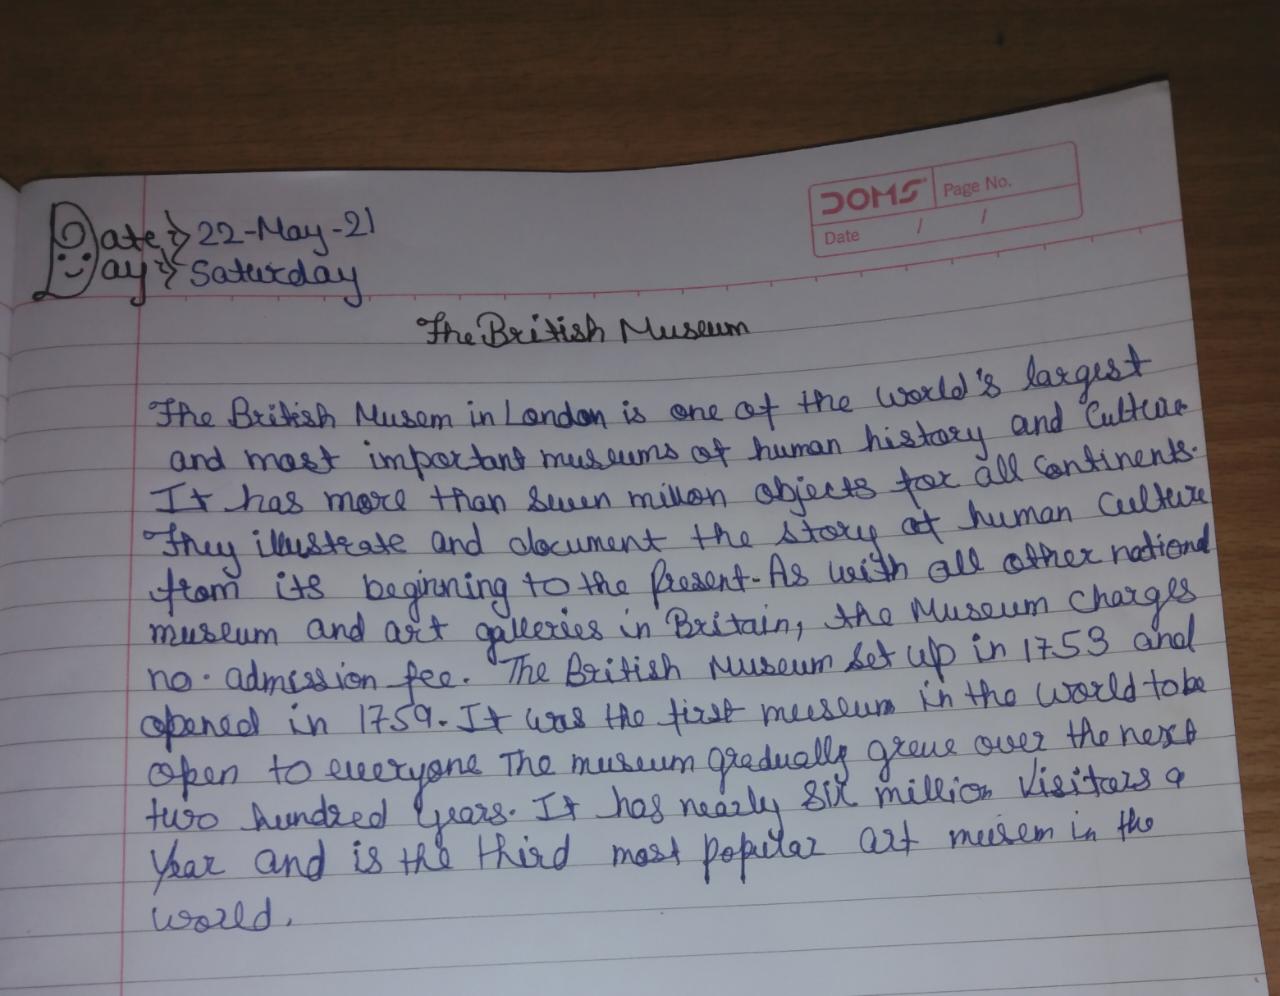 DOMS Page No.
Date / /
Date :> 22-May-21
Day :> Saturday
The British Museum
The British Musem in London is one of the world's largest
and most important museums of human history and Culture
It has more than seven millon objects for all Continents.
They illustrate and document the story of human Culture
from its beginning to the Present. As with all other national
museum and art galleries in Britain, the Museum charges
no. admission fee. The British Museum set up in 1753 and
opened in 1759. It was the first museum in the world to be
open to everyone The museum gradually greue over the next
two hundred years. It has nearly six million visitors a
Year and is the third most popular art musem in the
world.